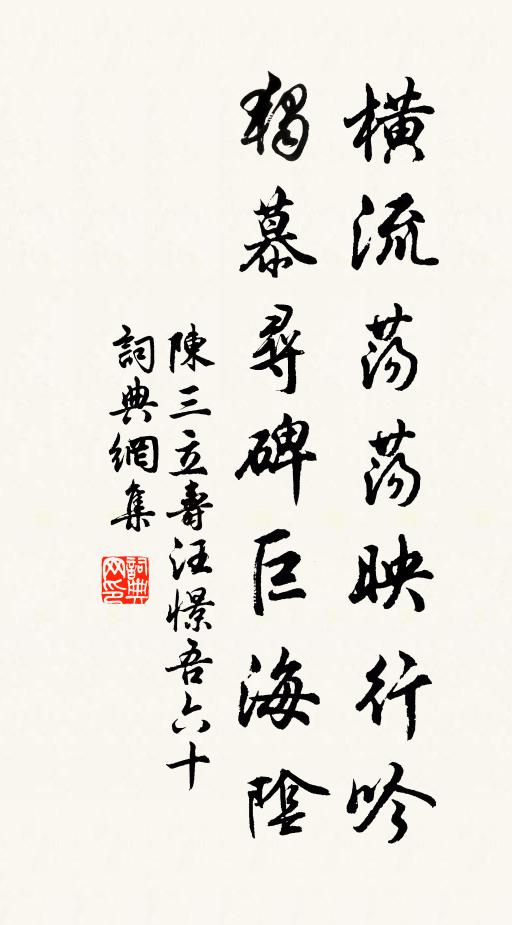 橫流蕩蕩映行吟
獨慕尋碑巨海陰
陳三立壽汪憬吾六十
詞典網集
詞典网印